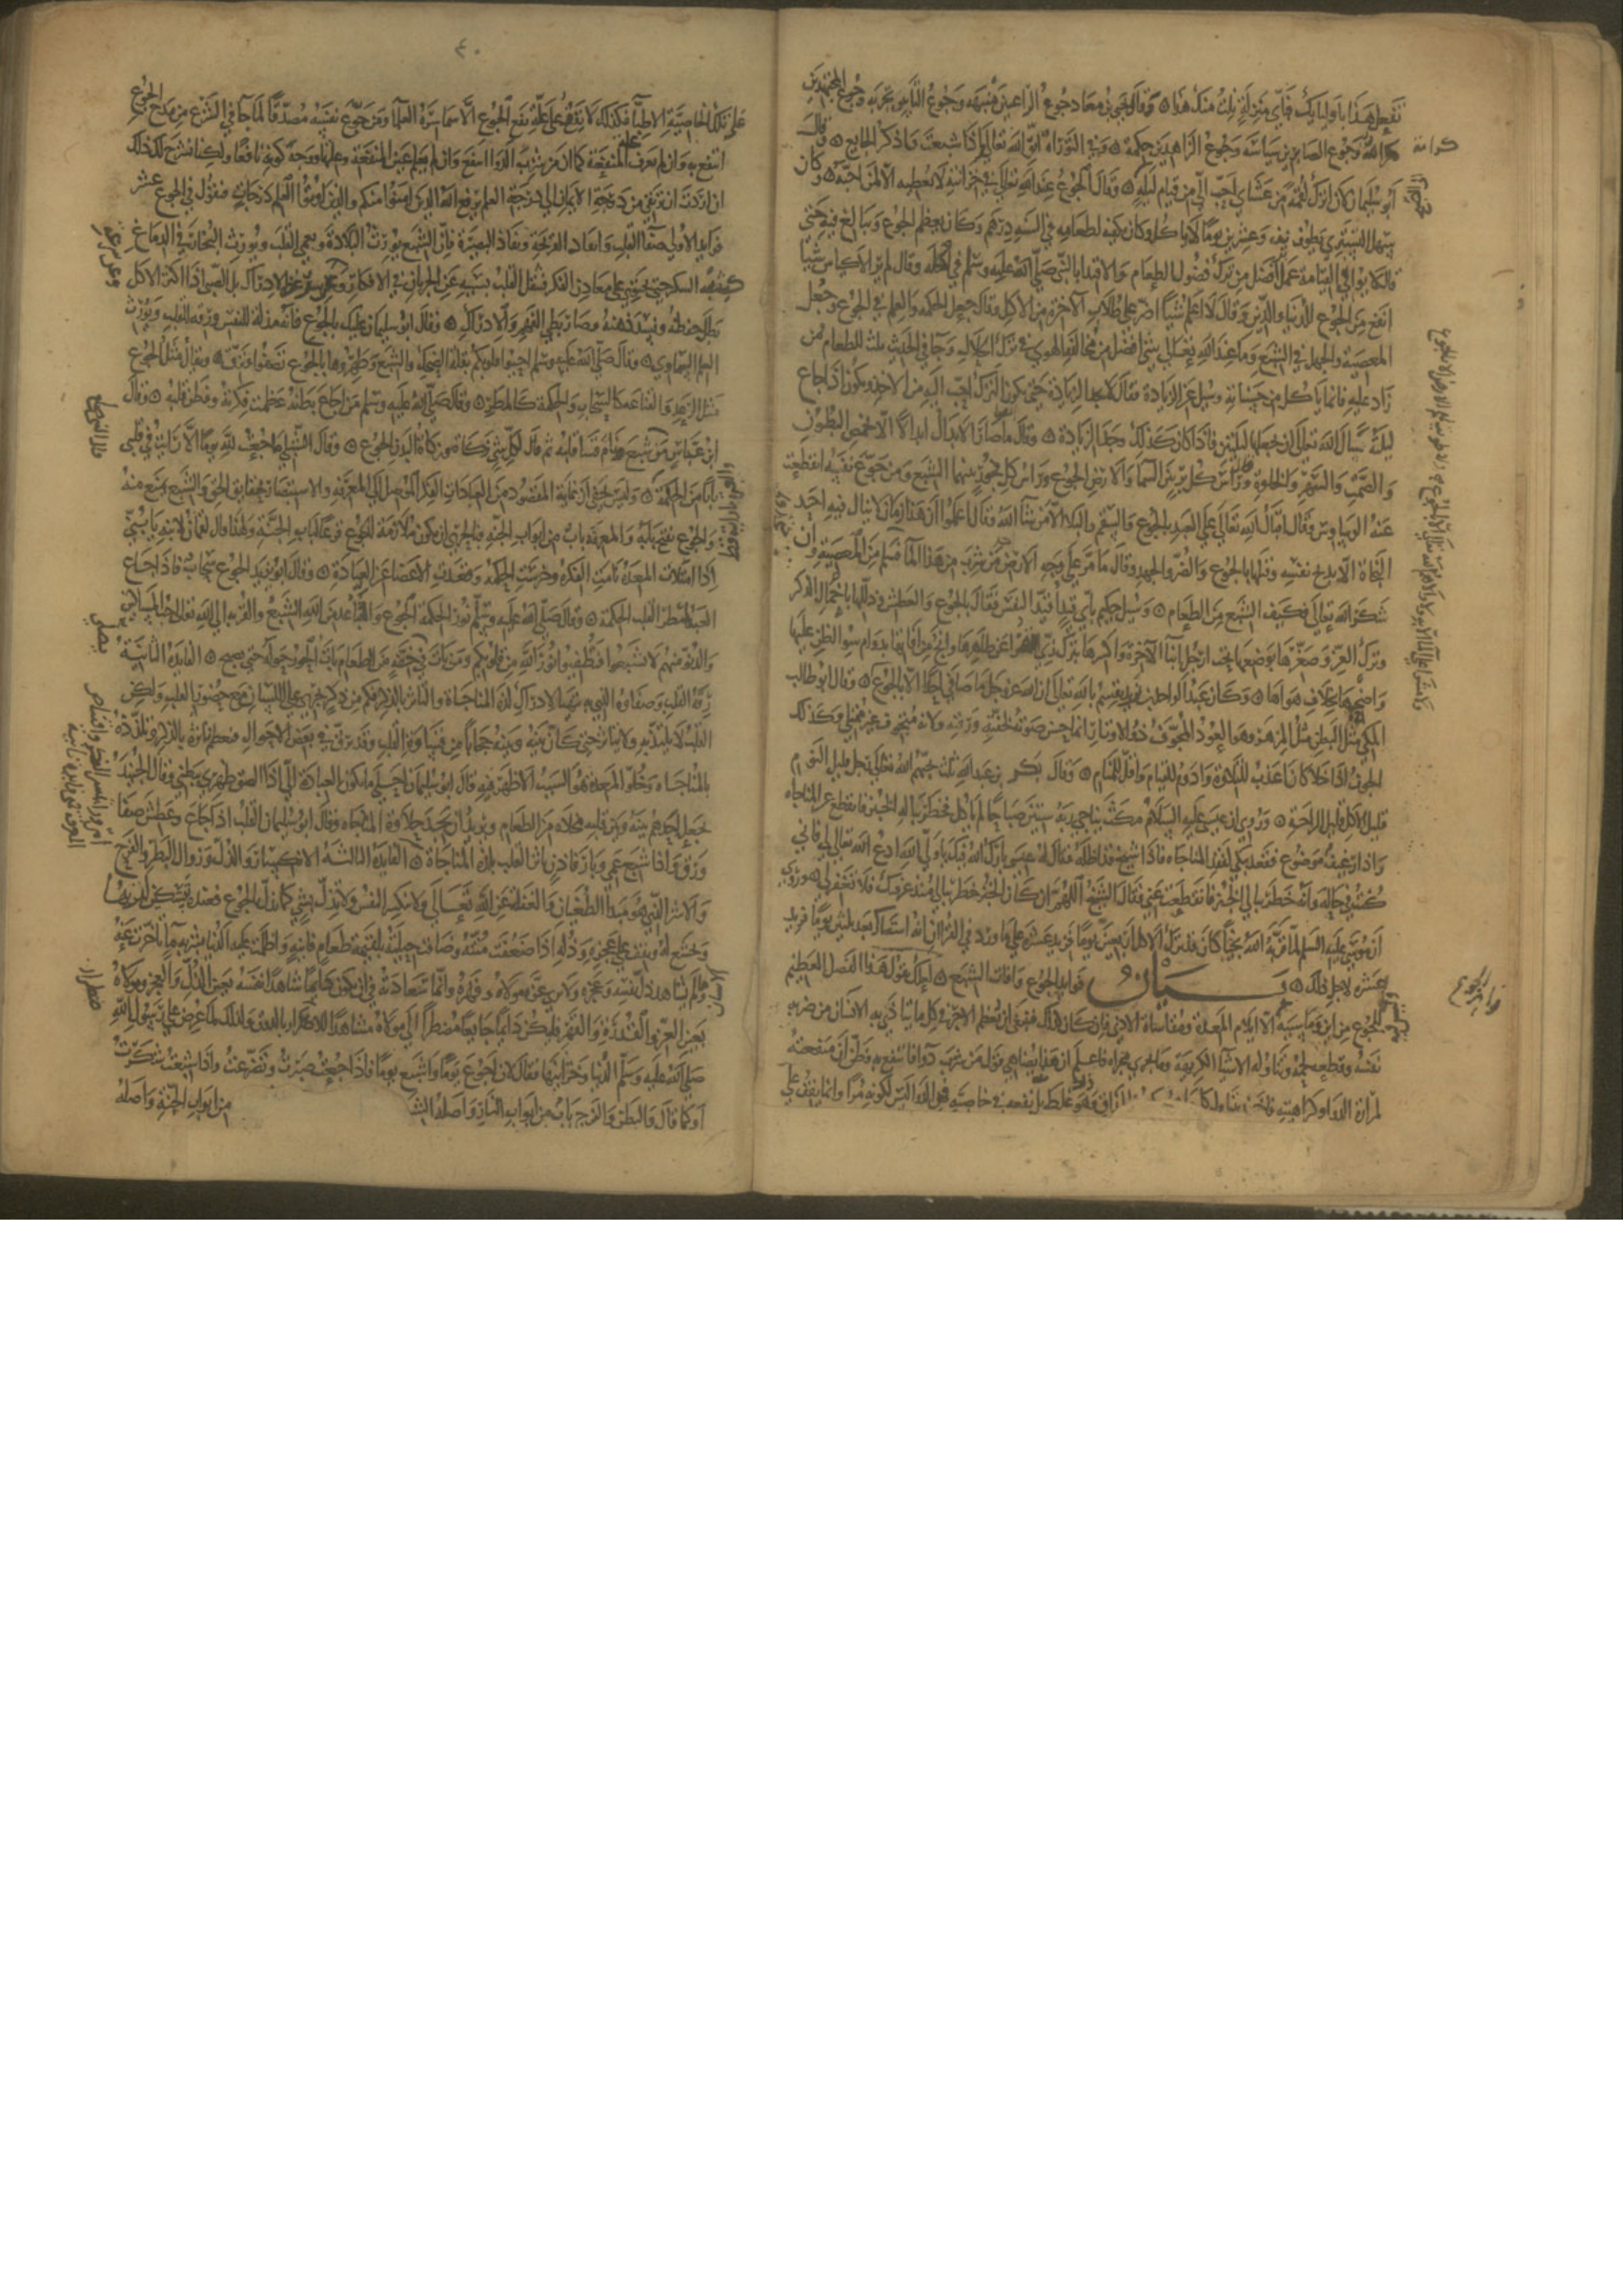 تفعل هذا باوليايك فباي منزلة نلت منك هذا وقال يحيى بن معاذ جوع الراغبين منبهة وجوع التايبين تجربة وجوع المجتهدين
كرامة وجوع الصابرين سياسة وجوع الزاهدين حكمة وفي التوراة اتق الله تعالى واذا شبعت فاذكر الجايع وقال
ابو سليمان لان اترك لقمة من عشاي احب الي من قيام ليلة وقال الجوع عند الله تعالى في خزاينه لا يعطيه الا لمن احبه وكان
سهل التستري يطوي نيف وعشرين يوما لا ياكل وكان يكفيه لطعامه في السنة درهم وكان يعظم الجوع ويبالغ فيه حتى
قال لا يوافي القيامة عمل افضل من ترك فضول الطعام والاقتدا بالنبي صلى الله عليه وسلم في اكله وقال لم ير الاكياس شيا
انفع من الجوع للدنيا والدين وقال لا اعلم شيئا اضر على طلاب الاخرة من الاكل وقال جعل الحكمة والعلم في الجوع وجعل
المعصية والجهل في الشبع وما عبد الله تعالى بشي افضل من مخالفة الهوى في ترك الحلال وجا في الحديث ثلث للطعام فمن
زاد عليه فانما ياكل من حسناته وسيل عن الزيادة فقال لا يجد الزيادة حتى يكون الترك احب اليه من الاخذ ويكون اذا جاع
ليلة سال الله تعالى ان يجعلها ليلتين فاذا كان كذلك وجد الزيادة وقال ما صار الابدال ابدالا الا باخماص البطون
والصمت والسهر والخلوة وقال راس كل بر بين السما والارض الجوع وراس كل فجور بينهما الشبع ومن جوع نفسه انقطعت
عنه الوساوس وقال اقبال الله تعالى على العبد بالجوع والسقم والبلا الا من شا الله وقال اعلموا ان هذا زمان لا ينال فيه احد
النجاة الا بذبح نفسه وقتلها بالجوع والصبر والجهد وقال ما مر على وجه الارض من شرب من هذا الما فسلم من المعصية وان
شكر الله تعالى فكيف الشبع من الطعام وسيل حكيم باي قيد اقيد النفس فقال بالجوع والعطش وذللها باخمال الذكر
وترك العز وصغرها بوضعها تحت ارجل ابنا الاخرة واكسرها بترك زي القرا عن ظاهرها وانج من افاتها بدوام سو الظن عليها
واصحبها بخلاف هواها وكان عبد الواحد بن زيد يقسم بالله تعالى ان الله عز وجل ما صافى احدا الا بالجوع وقال ابو طالب
المكي مثل البطن مثل المزهر وهو العود المجوف ذو الاوتار انما حسن صوته لخفته ورقته ولانه مجوف غير ممتلي وكذلك
الجوف اذا خلا كان اعذب للتلاوة وادوم للقيام واقل للمنام وقال بكر بن عبد الله ثلث يحبهم الله تعالى رجل قليل النوم
قليل الاكل قليل الراحة وروي ان عيسى عليه السلام مكث يناجي ربه ستين صباحا لم ياكل فخطر بباله الخبز فانقطع عن المناجاه
واذا رغيف موضوع فقعد يبكي لفقد المناجاه فاذا شيخ قد اظله فقال له عيسى بارك الله فيك يا ولي الله ادع الله تعالى لي فاني
كنت في حالة وانه خطر ببالي الخبز فانقطعت عني فقال الشيخ اللهم ان كان الخبز خطر ببالي منذ عرفتك فلا تغفر لي
ان موسى عليه السلم لما قربه الله نجيا كان قد ترك الاكل اربعين يوما
عشرة لاجل ذلك بيان فوايد الجوع وافات الشبع لعلك تقول هذا الفضل العظيم
للجوع من اين وما سببه الا ايلام المعدة ومقاساة الاذى فان كان كذلك فينبغي ان يعظم الاجر في كل ما يتاذى به الانسان من ضربه
نفسه وقطعه لحمه وتناوله الاشيا الكريهة وما يجري مجراه فاعلم ان هذا يضاهي قول من شرب دوا فانتفع به وظن ان منفعته
لمرارة الدوا وكراهيته فاخذ يتناول كل المذاق وهو غلط بل نفعه في خاصية في الدوا ليس لكونه مرا وانما يقف على
٤٠
على تلك الخاصية الاطبا فكذلك لا يقف على علة نفع الجوع الا سماسرة العلما ومن جوع نفسه مصدقا لما جا في الشرع من مدح الجوع
انتفع به وان لم يعرف علة المنفعة كما ان من شرب الدوا انتفع وان لم يعلم عين المنفعة وعلتها ووجه كونه نافعا ولكنا نشرح لك ذلك
ان اردت ان ترتقي من درجة الايمان الى درجة العلم يرفع الله الذين امنوا منكم والذين اوتوا العلم درجات فنقول في الجوع عشر
فوايد الاولى صفا القلب وايقاد القريحة ونفاذ البصيرة فان الشبع يورث البلادة ويعمي القلب ويورث البخار في الدماغ
كشبه السكر حتى يحتوي على معادن الفكر فيثقل القلب بسببه عن الجريان في الافكار وعن سرعة الادراك بل الصبي اذا اكثر الاكل
بطل حفظه وفسد ذهنه وصار بطي الفهم والادراك وقال ابو سليمان عليك بالجوع فانه مذلة للنفس ورقة للقلب ويورث
العلم السماوي وقال صلى الله عليه وسلم احيوا قلوبكم بقلة الضحك والشبع وطهروها بالجوع تصفوا وترق ويقال مثل الجوع
مثل الرعد والقناعة كالسحاب والحكمة كالمطر وقال صلى الله عليه وسلم من اجاع بطنه عظمت فكرته وفطن قلبه وقال
ابن عباس من شبع ونام قسا قلبه ثم قال لكل شي زكاة وزكاة البدن الجوع وقال الشبلي ما جعت لله يوما الا رايت في قلبي
بابا من الحكمة وليس يخفى ان غاية المقصود من العبادات الفكر الموصل الى المعرفة والاستبصار بحقايق الحق والشبع يمنع منه
والجوع يفتح بابه والمعرفة باب من ابواب الجنة فبالحري ان يكون ملازمة الجوع قرعا لباب الجنة ولهذا قال لقمان لابنه يا بني
اذا امتلات المعدة نامت الفكرة وخرست الحكمة وقعدت الاعضا عن العبادة وقال ابو يزيد الجوع سحاب فاذا جاع
العبد امطر القلب الحكمة وقال صلى الله عليه وسلم نور الحكمة الجوع والتباعد من الله الشبع والقربة الى الله تعالى حب المساكين
والدنو منهم لا تشبعوا فتطفيوا نور الله من قلوبكم ومن بات في خفة من الطعام بات الحور حوله حتى يصبح الفايدة الثانية
رقة القلب وصفاوه الذي به تهيا لادراك لذة المناجاة والتاثر بالذكر فكم من ذكر يجري على اللسان مع حضور القلب ولكن
القلب لا يلتذ به ولا يتاثر حتى كان بينه وبينه حجابا من قساوة القلب وقد يرق في بعض الاحوال فيعظم تاثره بالذكر وتلذذه
بالمناجاه وخلو المعدة هو السبب الاظهر فيه قال ابو سليمان احلى ما يكون العبادة الي اذا التصق ظهري ببطني وقال الجنيد
يجعل احدهم بينه وبين قلبه مخلاة من الطعام ويريد ان يجد حلاوة المناجاه وقال ابو سليمان القلب اذا جاع وعطش صفا
ورق واذا شبع عمي وبار الفايدة الثالثة الانكسار والذل وزوال البطر والفرح
والاشر الذي هو مبدا الطغيان والغفلة عن الله تعالى ولا تنكسر النفس ولا تذل بشي كما تذل بالجوع فعنده تستكين لربها
وتخشع له وتقف على عجزه وذله اذا ضعفت منته وضاقت حيلته بلقيمة طعام فاتته واظلمت عليه الدنيا بشربة ما تاخرت عنه
وما لم يشاهد ذل نفسه وعجزه ولا يرى عزة مولاه وقهره وانما سعادته في ان يكون دايما شاهدا نفسه بعين الذل والعجز ومولاه
بعين العز والقدرة والقهر فليكن دايما جايعا مضطرا الى مولاه مشاهدا للاضطرار بالذوق ولذلك لما عرض على رسول الله
صلى الله عليه وسلم الدنيا وخزاينها فقال لا بل اجوع يوما واشبع يوما فاذا جعت صبرت وتضرعت واذا شبعت شكرت
او كما قال والبطن والفرج باب من ابواب النار واصله الشبع من ابواب الجنة واصله
كرامة
فوايد الجوع